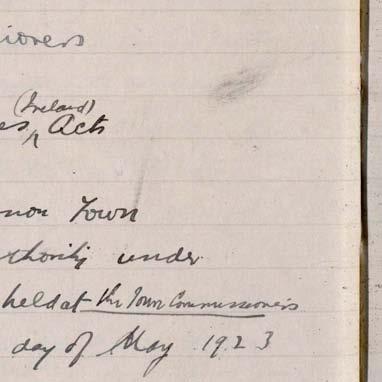 ioners
(Ireland)
es ^ Acts
non Town
thority under
held at the Town Commissioners
day of May 1923